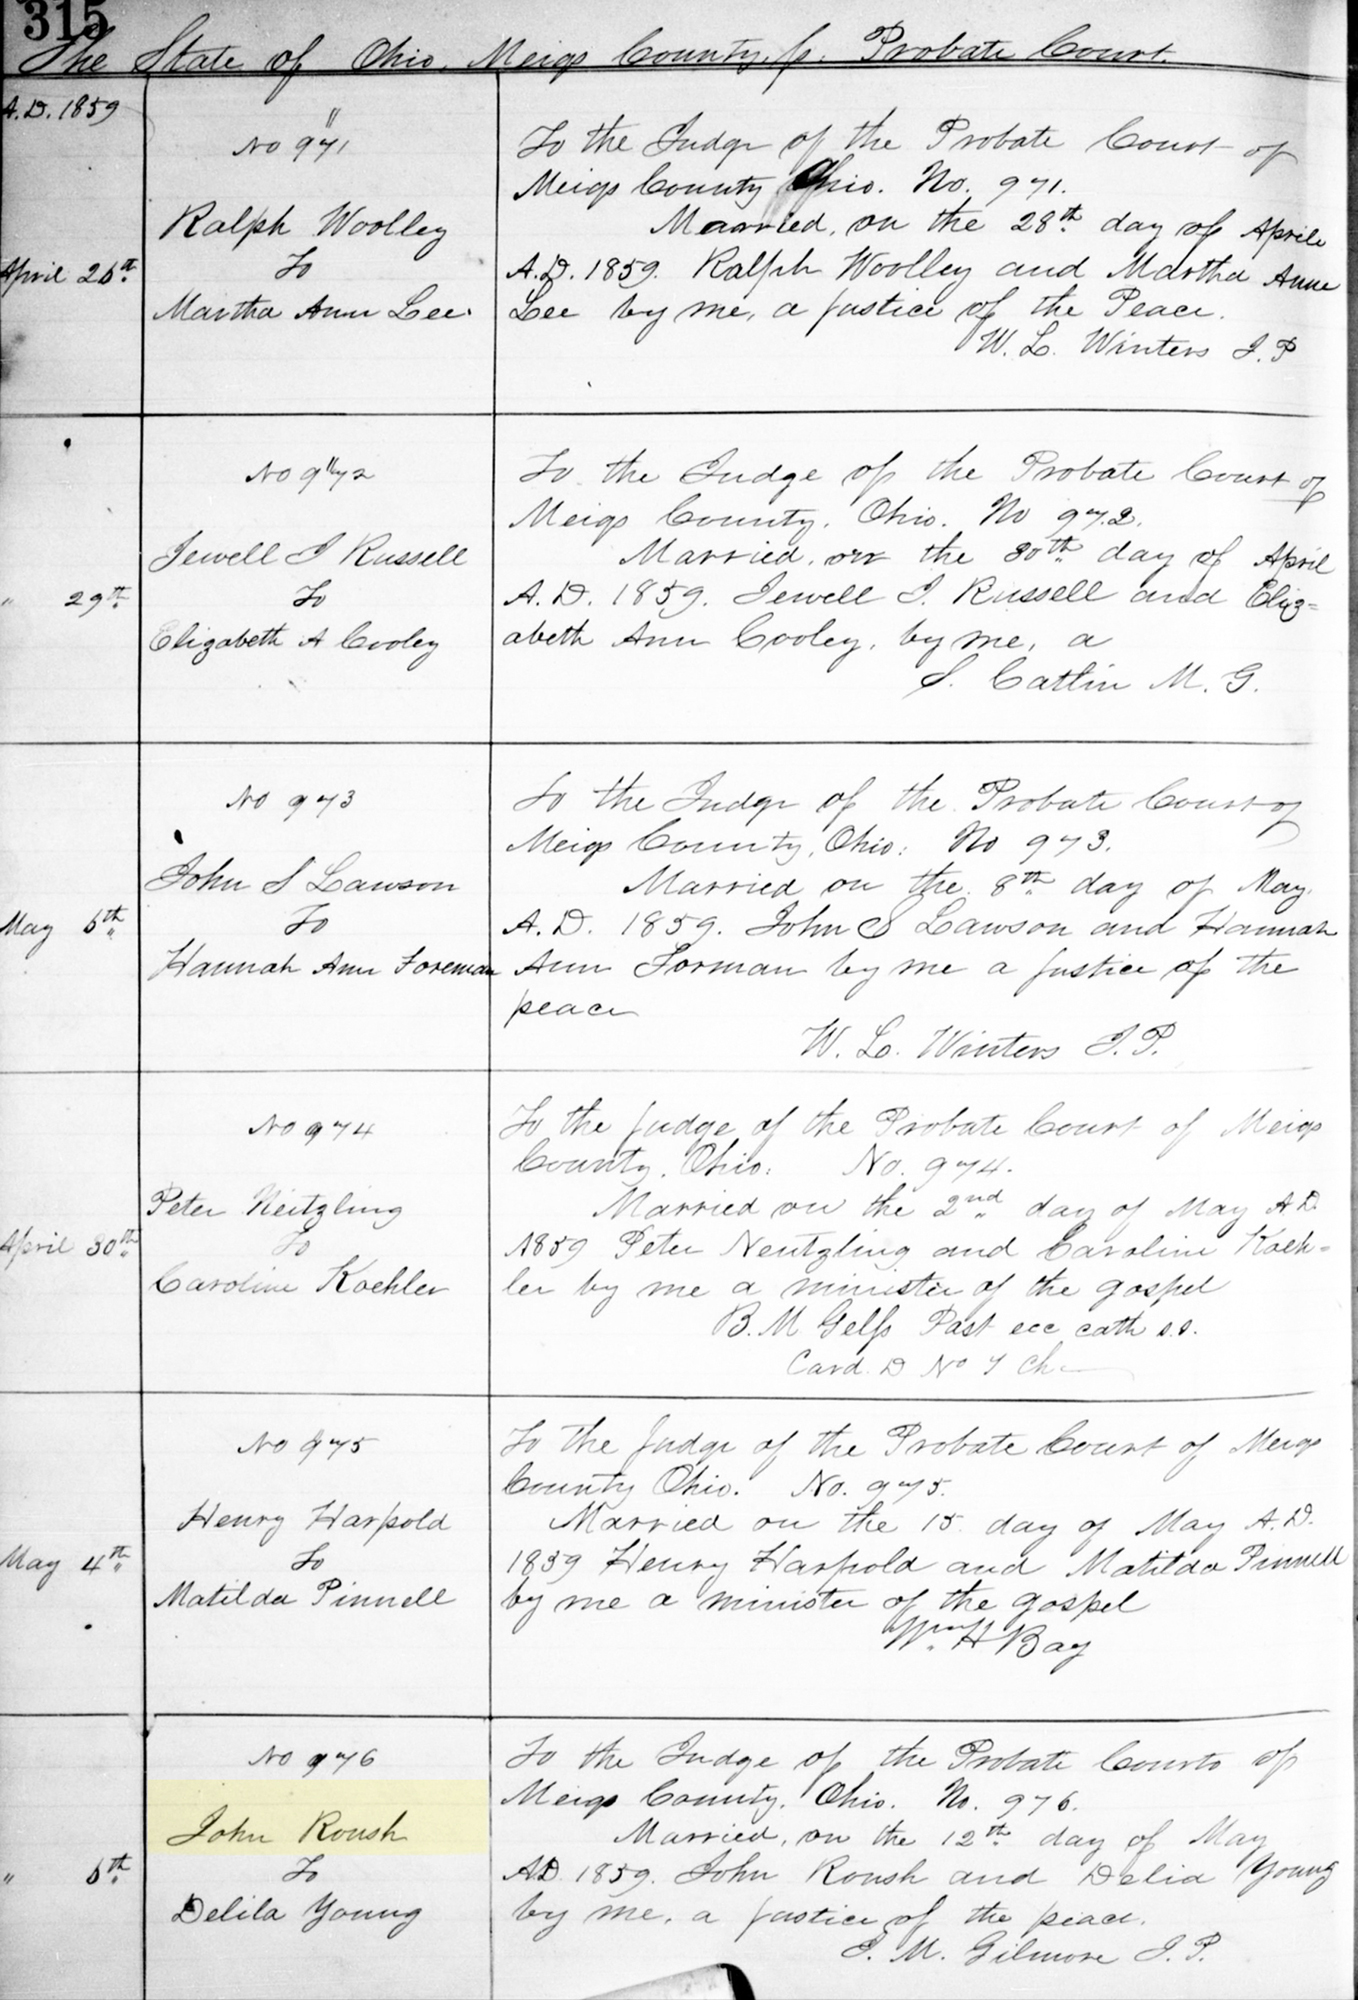 315
The State of Ohio, Meigs County, ss. Probate Court.
A.D. 1859
"
No 971
Ralph Woolley
April 26th
To
Martha Ann Lee.
To the Judge of the Probate Court of
Meigs County Ohio. No. 971.
Married, on the 28th day of April
A.D. 1859. Ralph Woolley and Martha Anne
Lee by me, a justice of the Peace.
W. L. Winters J.P
"
No 972
Jewell J Russell
" 29th
To
Elizabeth A Cooley
To the Judge of the Probate Court of
Meigs County, Ohio. No 972.
Married, on the 30th day of April
A.D. 1859. Jewell J. Russell and Eliz=
abeth Ann Cooley, by me, a
S. Catlin M. G.
No 973
John S Lawson
May 6th
To
Hannah Ann Foreman
To the Judge of the Probate Court of
Meigs County, Ohio: No 973.
Married on the 8th day of May,
A.D. 1859. John S Lawson and Hannah
Ann Forman by me a justice of the
peace
W. L. Winters J.P.
No 974
Peter Neitzling
April 30th
To
Caroline Koehler
To the judge of the Probate Court of Meigs
County, Ohio: No. 974.
Married on the 2nd day of May A.D.
1859 Peter Neutzling and Caroline Koeh=
ler by me a minister of the gospel
B. M Gelfs Past ecc cath s.s.
Card. D No 7 Ch
No 975
Henry Harpold
May 4th
To
Matilda Pinnell
To the judge of the Probate Court of Meigs
County Ohio. No. 975.
Married on the 15 day of May A.D.
1859 Henry Harpold and Matilda Pinnell
by me a minister of the gospel
Wm H Bay
No 976
John Roush
" 6th
To
Delila Young
To the Judge of the Probate Courts of
Meigs County, Ohio. No. 976.
Married, on the 12th day of May
AD. 1859. John Roush and Delia Young
by me, a justice of the peace.
J. M. Gilmore J.P.